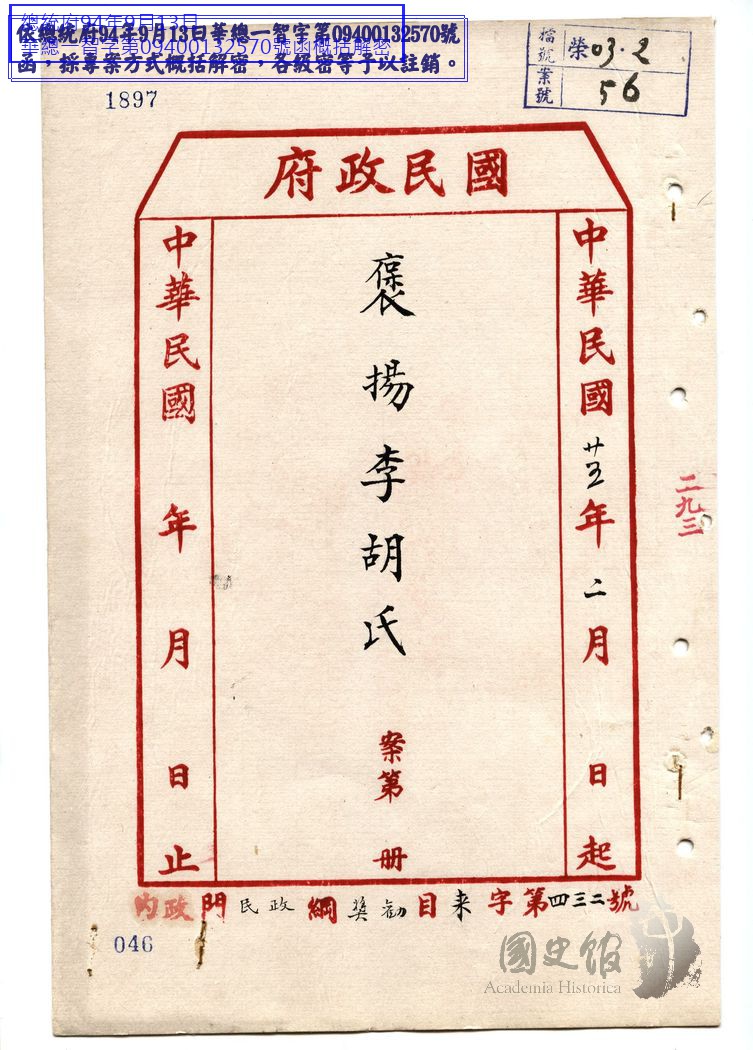 總統府94年9月13日
華總一智字第09400132570號函概括解密
依總統府94年9月13日華總一智字第09400132570號
函，採專案方式概括解密，各級密等予以註銷。
檔號 榮03.2
案號 56
1897
國民政府
中華民國廿五年二月 日起
褒揚李胡氏 案第 冊
中華民國 年 月 日止
二九三
內政門民政綱獎勸目来字第四三二號
046
國史館
Academia Historica